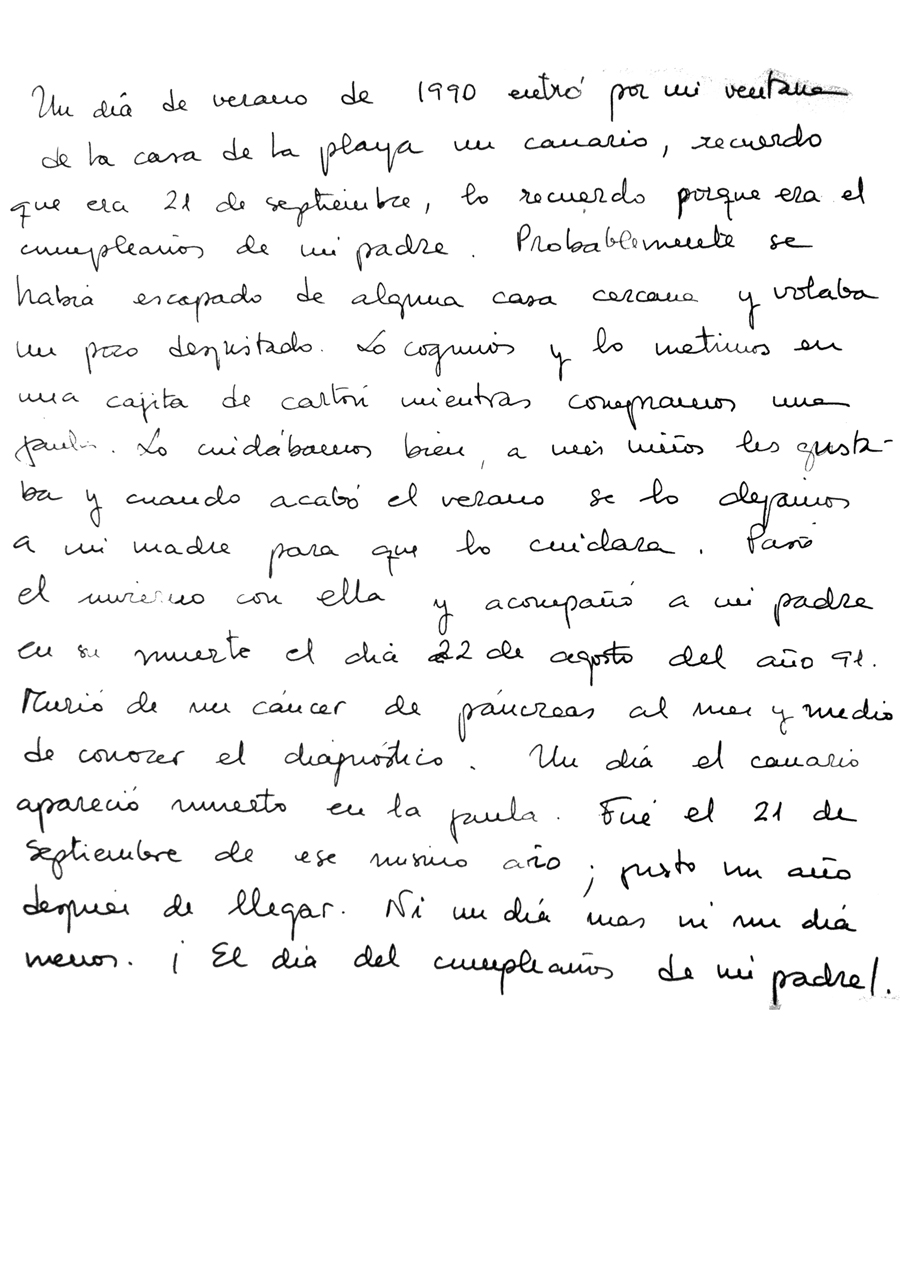 Un día de verano de 1990 entró por mi ventana
de la casa de la playa un canario, recuerdo
que era 21 de septiembre, lo recuerdo porque era el
cumpleaños de mi padre. Probablemente se
había escapado de alguna casa cercana y volaba
un poco despistado. Lo cogimos y lo metimos en
una cajita de cartón mientras compramos una
jaula. Lo cuidábamos bien, a mis niños les gusta-
ba y cuando acabó el verano se lo dejamos
a mi madre para que lo cuidara. Pasó
el invierno con ella y acompañó a mi padre
en su muerte el día 22 de agosto del año 91.
Murió de un cáncer de páncreas al mes y medio
de conocer el diagnóstico. Un día el canario
apareció muerto en la jaula. Fué el 21 de
Septiembre de ese mismo año; justo un año
después de llegar. Ni un día mas ni un día
menos. ¡El día del cumpleaños de mi padre!.